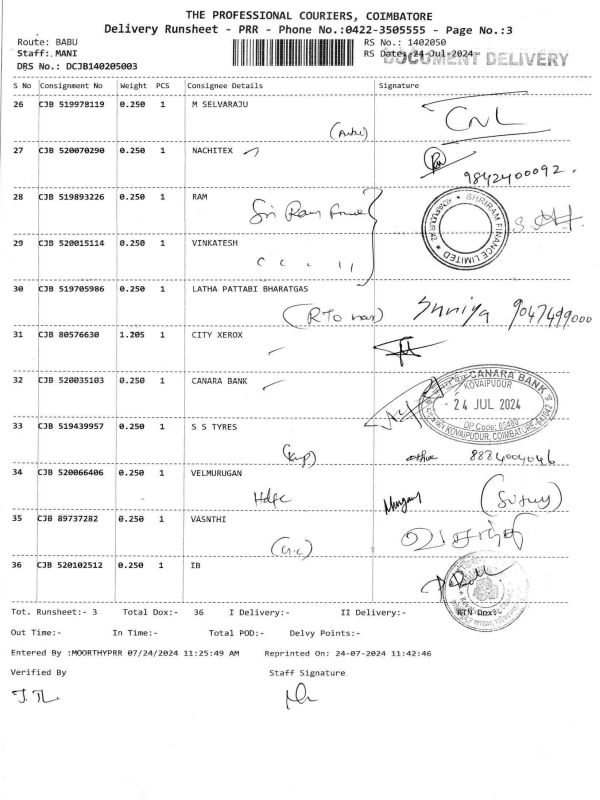 THE PROFESSIONAL COURIERS, COIMBATORE
Delivery Runsheet - PRR - Phone No.:0422-3505555 - Page No.:3
Route: BABU RS No.: 1402050
Staff: MANI RS Date: 24-Jul-2024
DOCUMENT DELIVERY
DRS No.: DCJB140205003
S No Consignment No Weight PCS Consignee Details Signature
26 CJB 519978119 0.250 1 M SELVARAJU
27 CJB 520070290 0.250 1 NACHITEX
9842400092.
28 CJB 519893226 0.250 1 RAM
Sri Ram
SHRIRAM FINANCE LIMITED
29 CJB 520015114 0.250 1 VINKATESH
30 CJB 519705986 0.250 1 LATHA PATTABI BHARATGAS
(RTO) 9047499000
31 CJB 80576630 1.205 1 CITY XEROX
32 CJB 520035103 0.250 1 CANARA BANK
CANARA BANK
KOVAIPUDUR
24 JUL 2024
KOVAIPUDUR, COIMBATORE-641042
33 CJB 519439957 0.250 1 S S TYRES
8884004046
34 CJB 520066406 0.250 1 VELMURUGAN
Hdfc
35 CJB 89737282 0.250 1 VASNTHI
வசந்தி
36 CJB 520102512 0.250 1 IB
Tot. Runsheet:- 3 Total Dox:- 36 I Delivery:- II Delivery:- RTN Dox:-
Out Time:- In Time:- Total POD:- Delvy Points:-
Entered By :MOORTHYPRR 07/24/2024 11:25:49 AM Reprinted On: 24-07-2024 11:42:46
Verified By Staff Signature